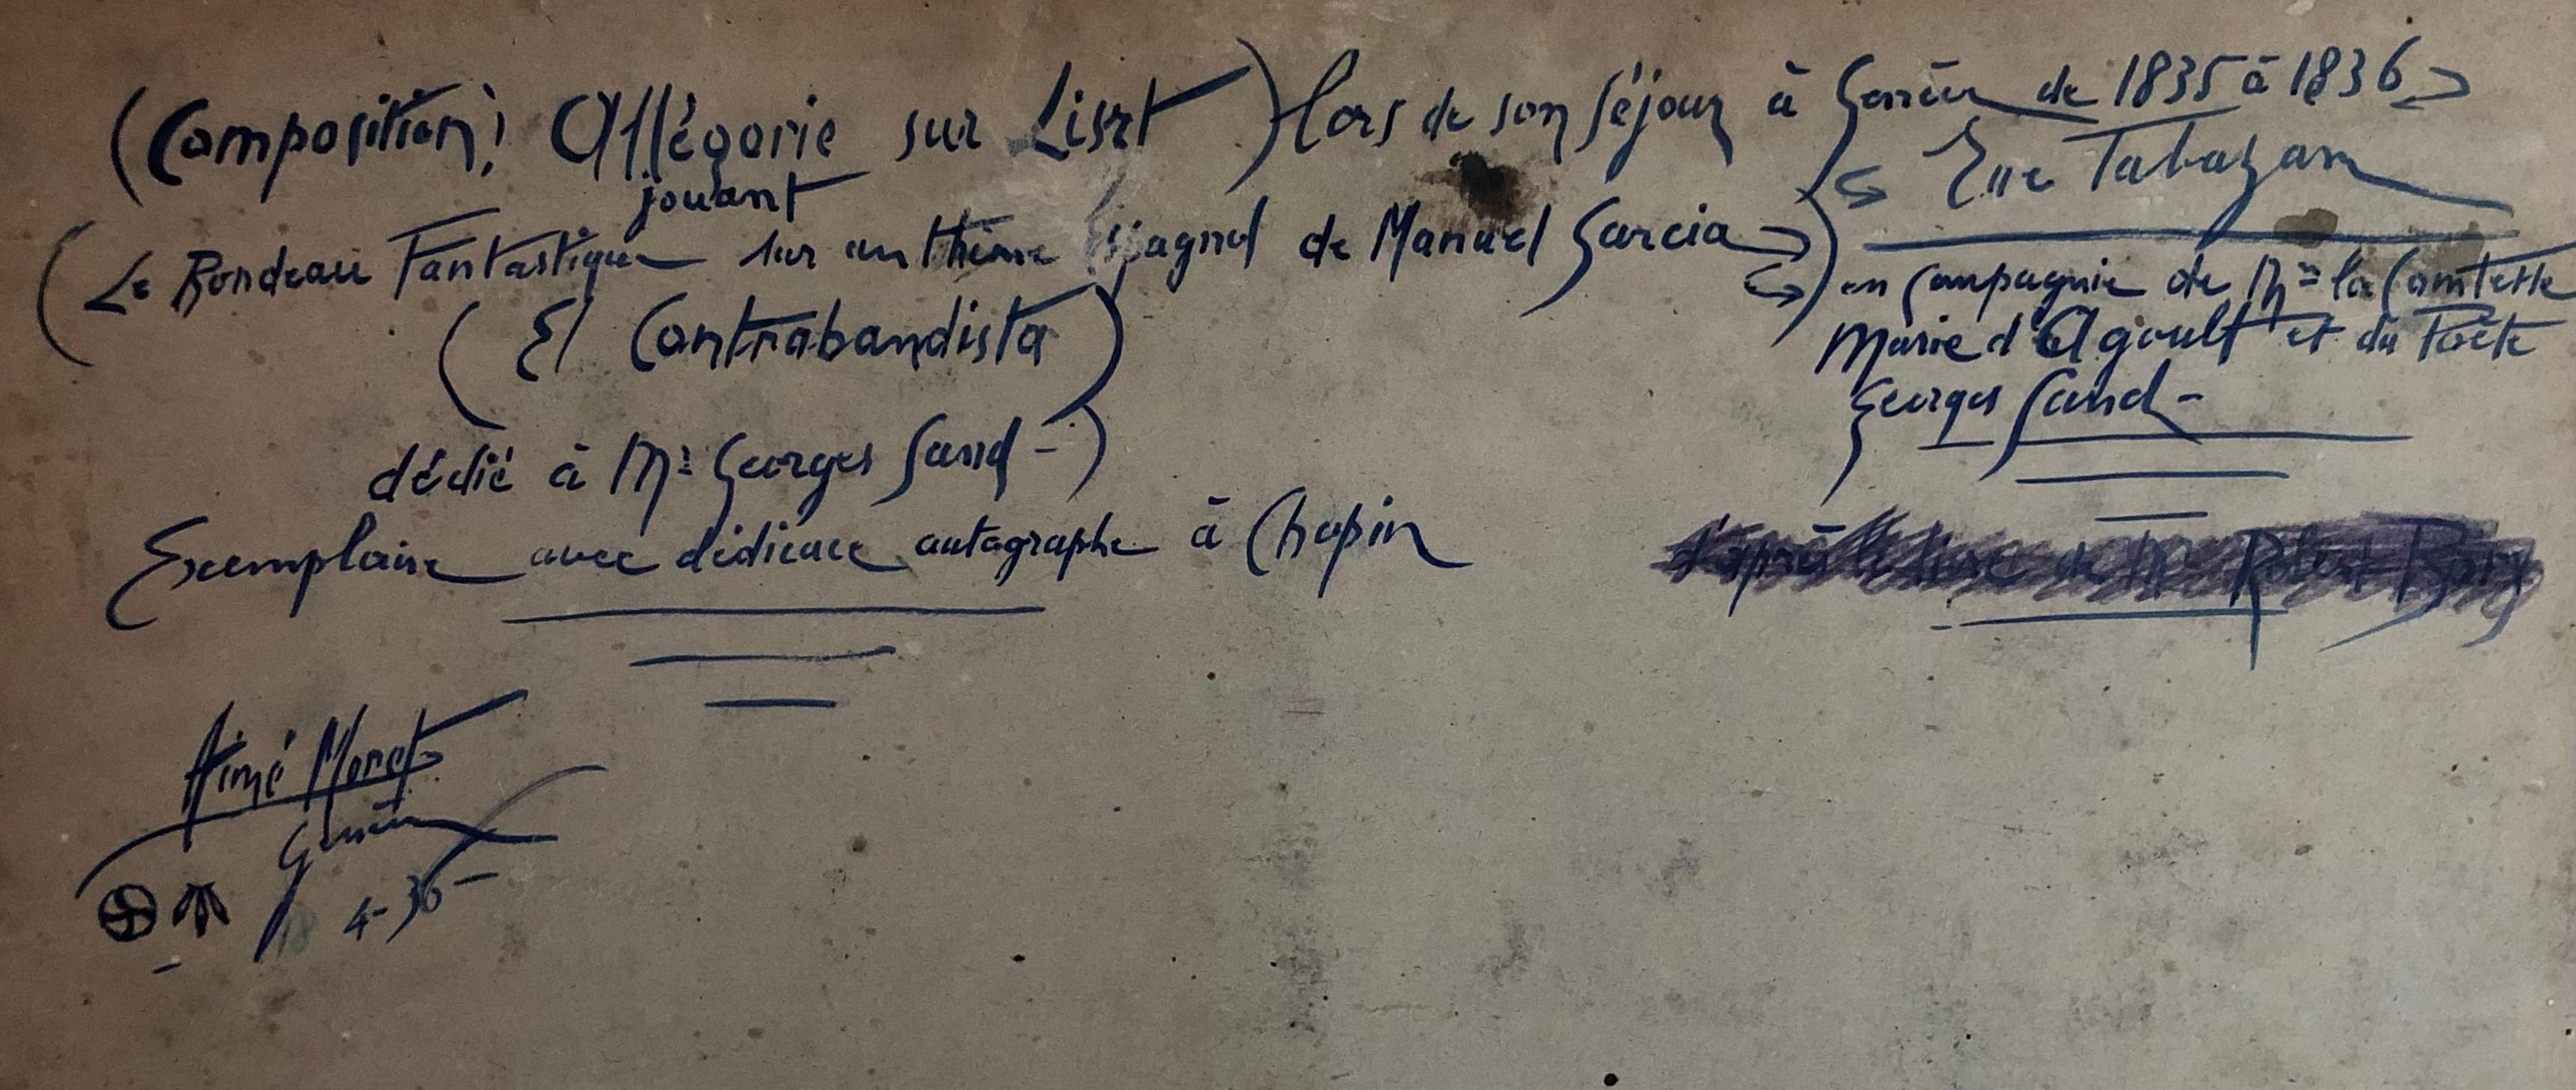 (Composition; Allégorie sur Liszt) lors de son séjour à Genève de 1835 à 1836 →
↪ Rue Tabazan
jouant
(Le Rondeau Fantastique sur un thème Espagnol de Manuel Garcia →)
↪ en compagnie de Mme la Comtesse
Marie d'Agoult et du Poète
Georges Sand -
(El Contrabandista)
dédié à Mr Georges Sand -)
Exemplaire avec dédicace autographe à Chopin
d'après le livre de Mr Robert Bory
Aimé Moret
Genève
4-36-